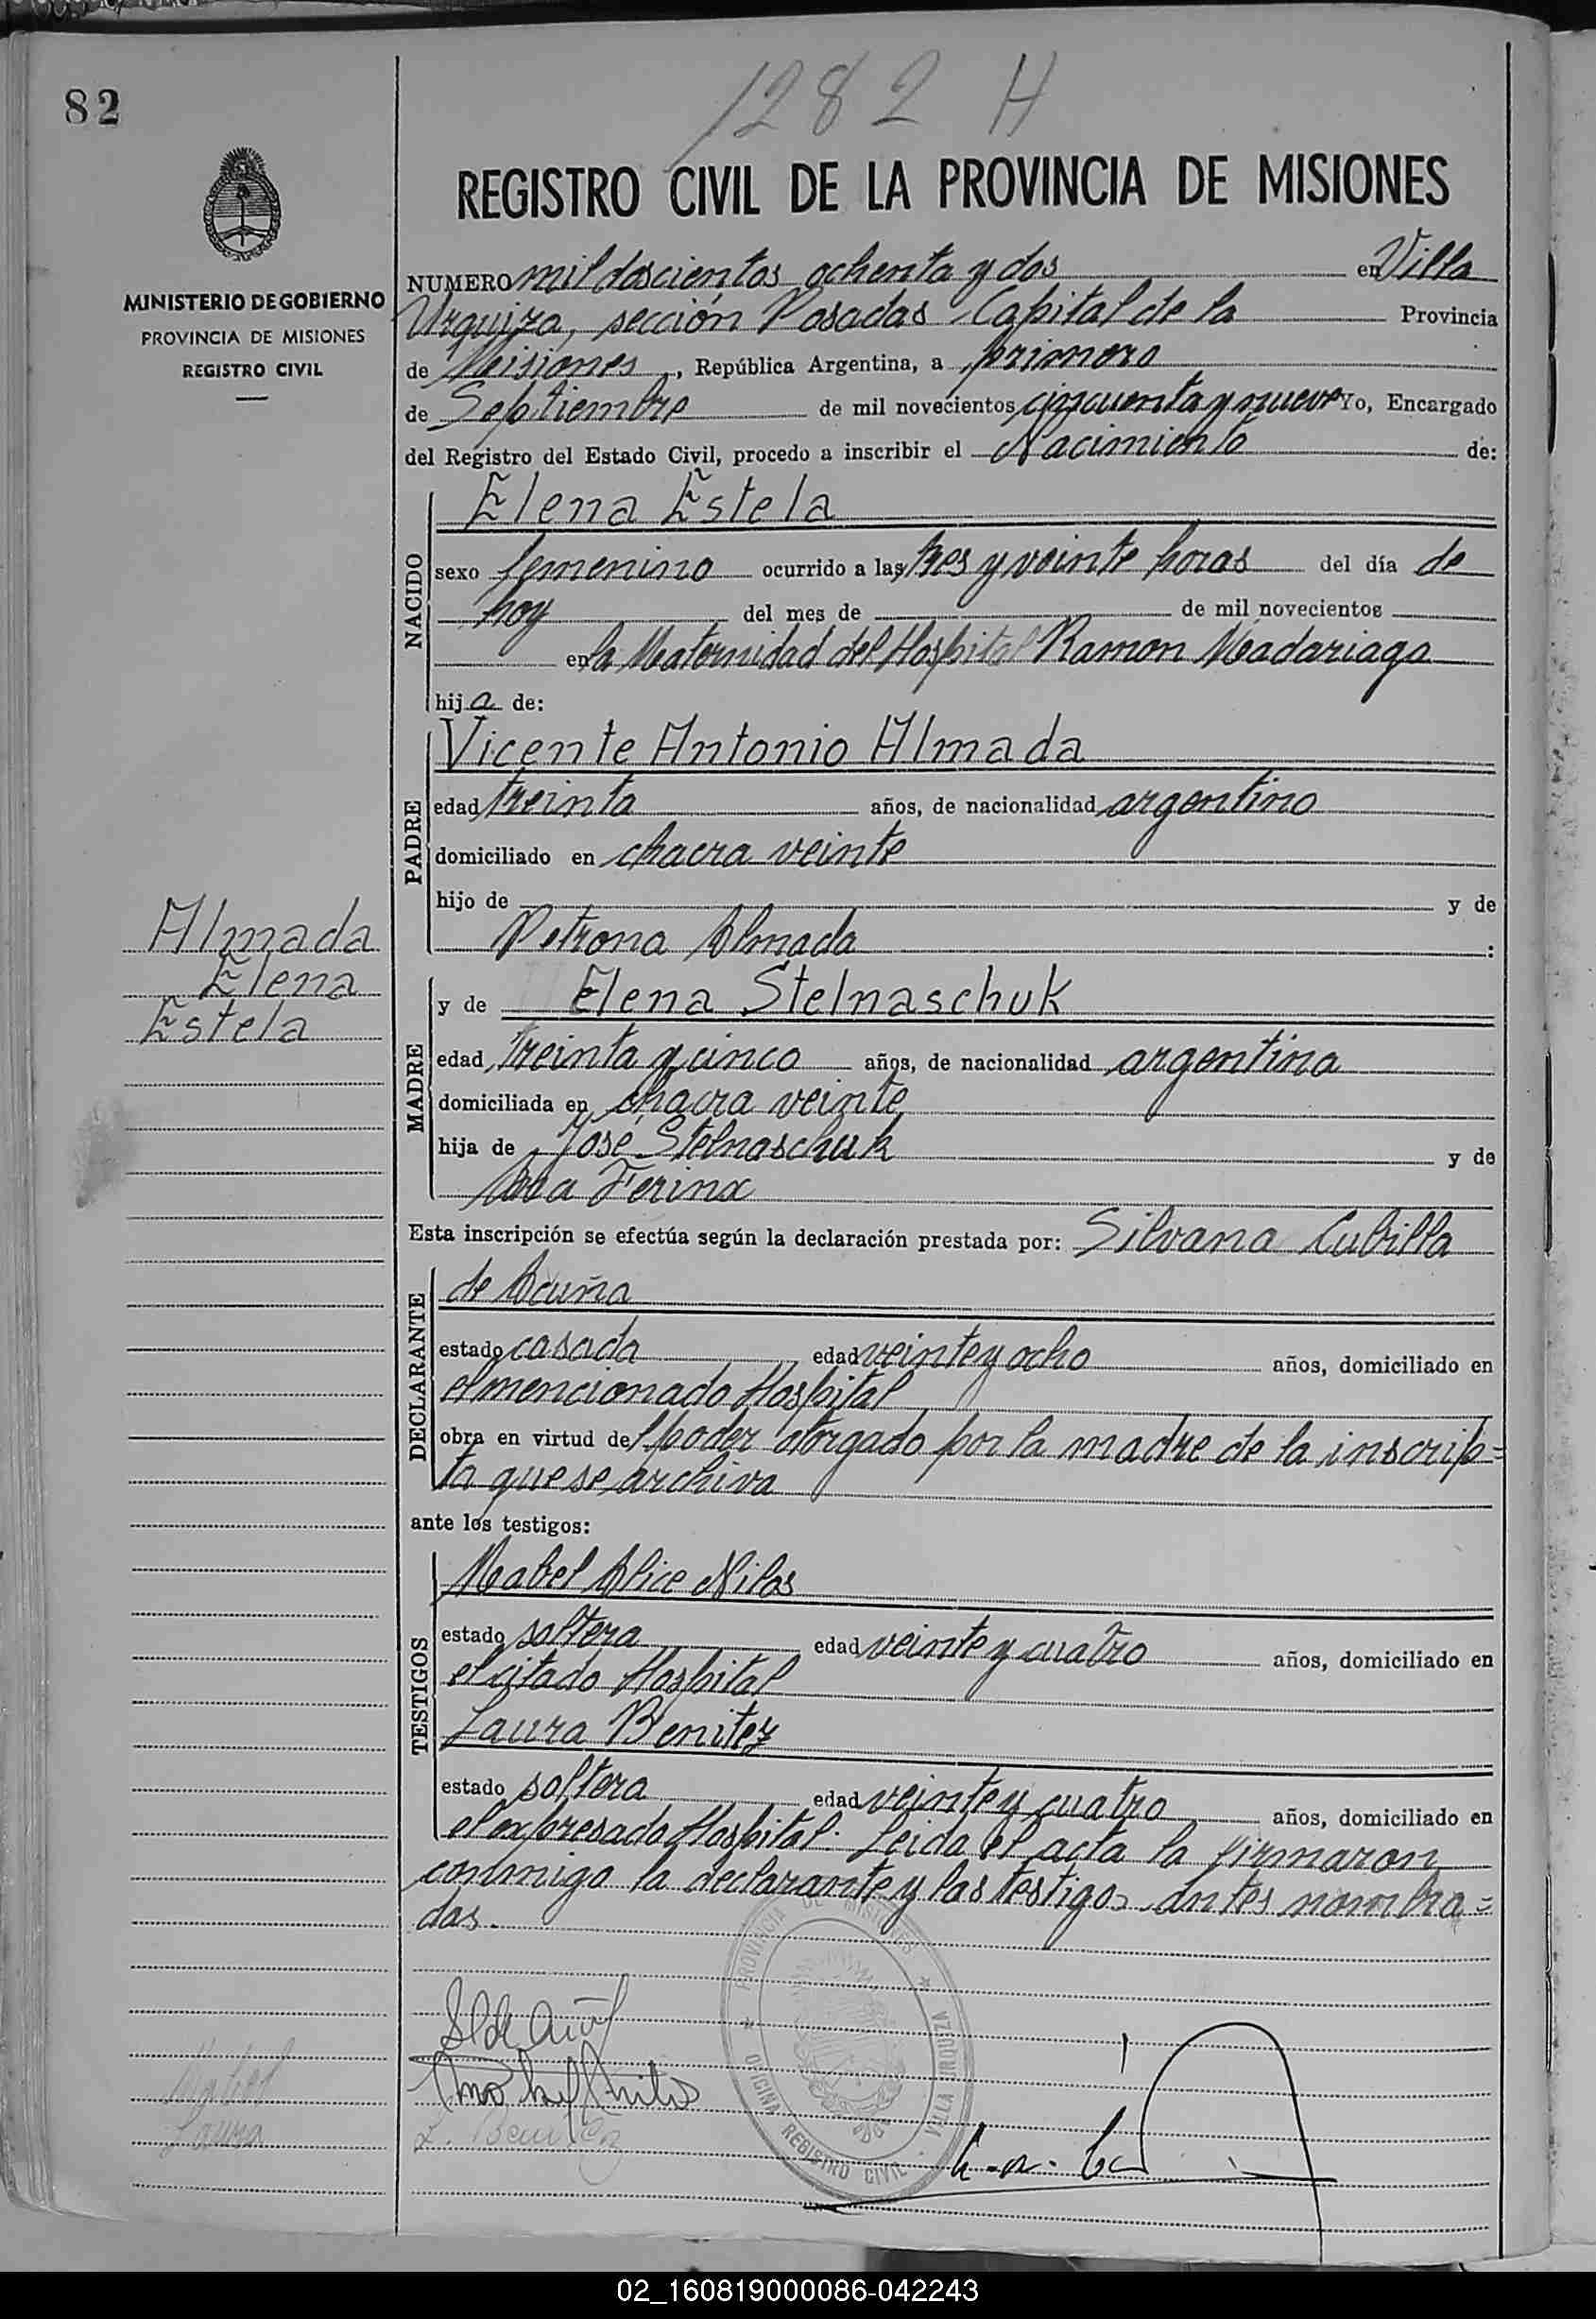 82
1282 H
REGISTRO CIVIL DE LA PROVINCIA DE MISIONES
MINISTERIO DE GOBIERNO
PROVINCIA DE MISIONES
REGISTRO CIVIL
NUMERO mil doscientos ochenta y dos en Villa
Urquiza, sección Posadas Capital de la Provincia
de Misiones, República Argentina, a primero
de Septiembre de mil novecientos cincuenta y nueve Yo, Encargado
del Registro del Estado Civil, procedo a inscribir el Nacimiento de:
NACIDO
Elena Estela
sexo femenino ocurrido a las tres y veinte horas del día de
hoy del mes de de mil novecientos
en la Maternidad del Hospital Ramon Madariaga
hija de:
PADRE
Vicente Antonio Almada
edad treinta años, de nacionalidad argentino
domiciliado en chacra veinte
hijo de y de
Petrona Almada :
Almada
Elena
Estela
MADRE
y de Elena Stelnaschuk
edad treinta y cinco años, de nacionalidad argentina
domiciliada en chacra veinte
hija de José Stelnaschuk y de
Ferinx
Esta inscripción se efectúa según la declaración prestada por: Silvana Cubilla
DECLARANTE
de Acuña
estado casada edad veinte y ocho años, domiciliado en
el mencionado Hospital
obra en virtud del poder otorgado por la madre de la inscrip=
ta que se archiva
ante los testigos:
TESTIGOS
Mabel Alice Nilos
estado soltera edad veinte y cuatro años, domiciliado en
el citado Hospital
Laura Benitez
estado soltera edad veinte y cuatro años, domiciliado en
el expresado Hospital. Leida el acta la firmaron
conmigo la declarante y las testigos antes nombra=
das.
PROVINCIA DE MISIONES
OFICINA REGISTRO CIVIL - VILLA URQUIZA
Mabel
Laura
L. Benitez
02_160819000086-042243